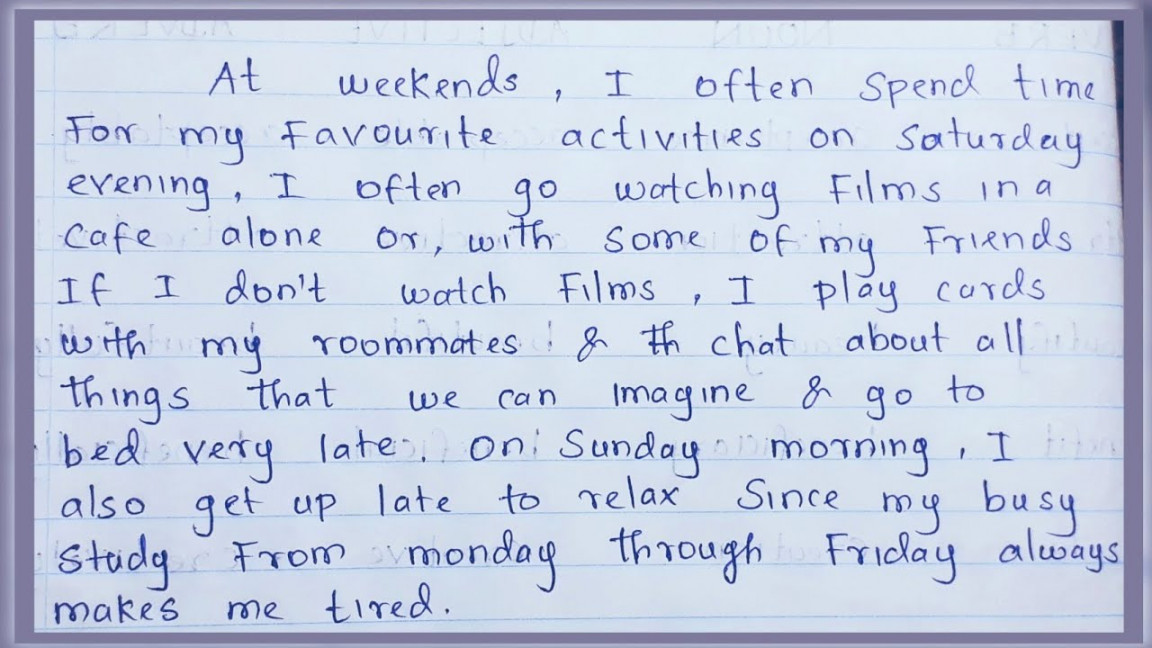 At weekends, I often spend time
For my favourite activities on Saturday
evening, I often go watching films in a
cafe alone or, with some of my Friends
If I don't watch films, I play cards
with my roommates & th chat about all
things that we can imagine & go to
bed very late. On Sunday morning, I
also get up late to relax Since my busy
study From monday through Friday always
makes me tired.